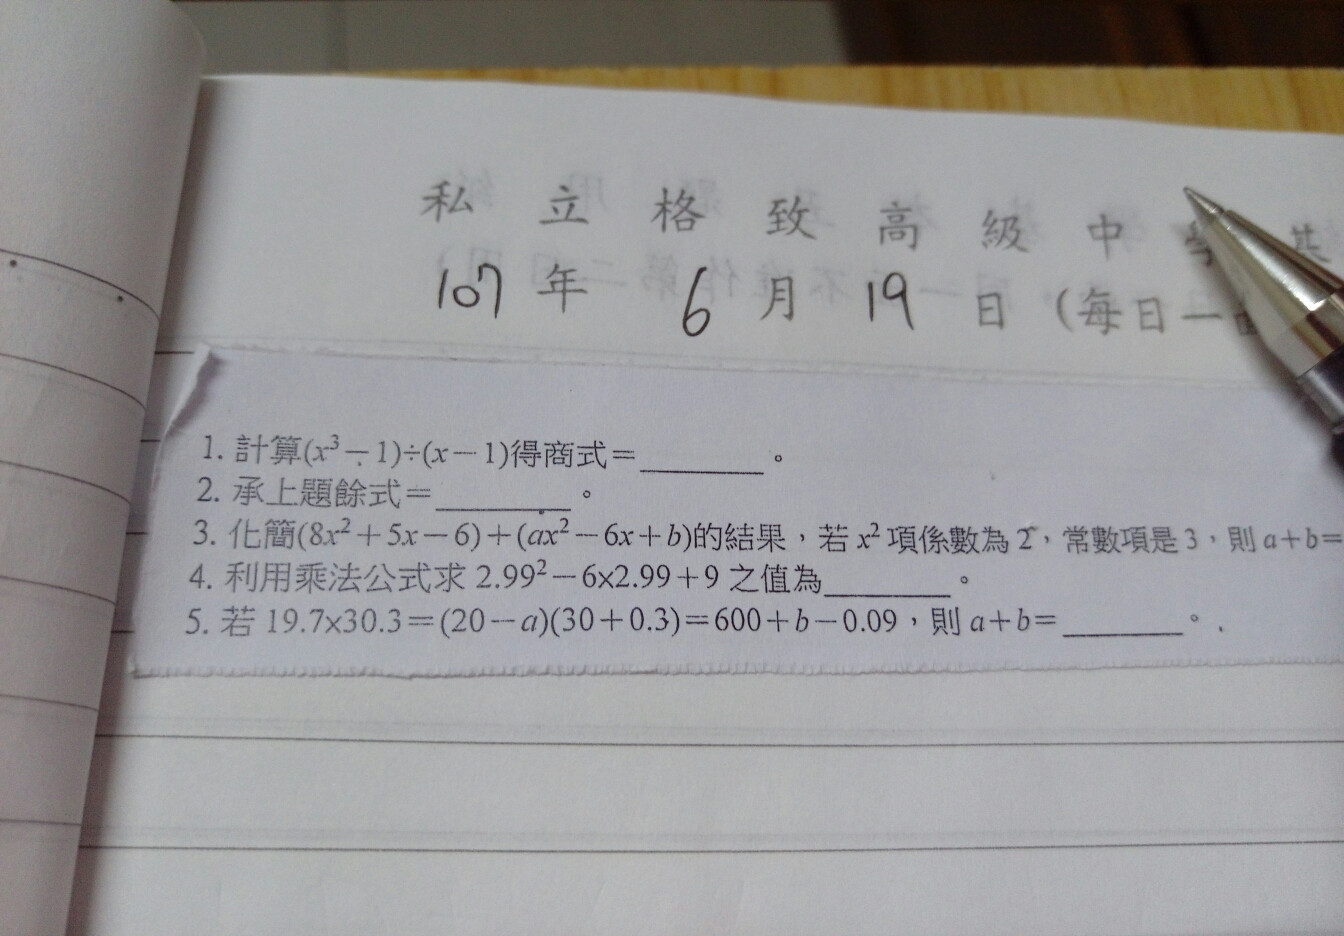 私立格致高級中學
107年 6月 19日 (每日一
1. 計算(x³－1)÷(x－1)得商式＝________。
2. 承上題餘式＝________。
3. 化簡(8x²＋5x－6)＋(ax²－6x＋b)的結果，若 x² 項係數為 2，常數項是 3，則 a＋b＝
4. 利用乘法公式求 2.99²－6×2.99＋9 之值為________。
5. 若 19.7×30.3＝(20－a)(30＋0.3)＝600＋b－0.09，則 a＋b＝________。